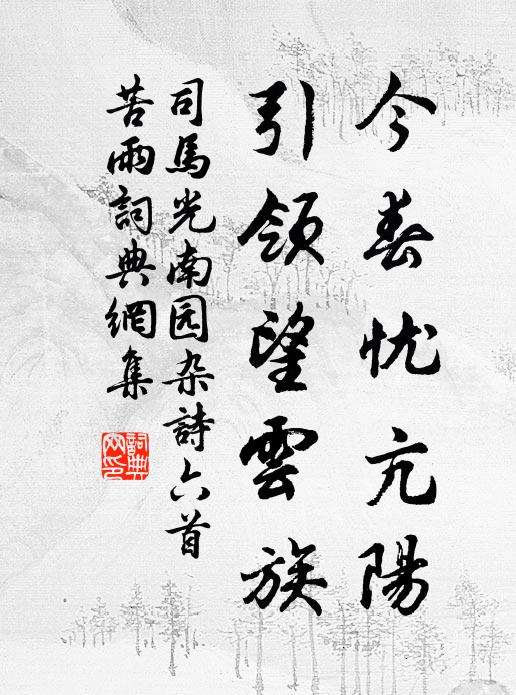 今春忧亢陽
引领望雲族
司馬光南园杂詩六首
苦雨詞典網集
詞典
网印